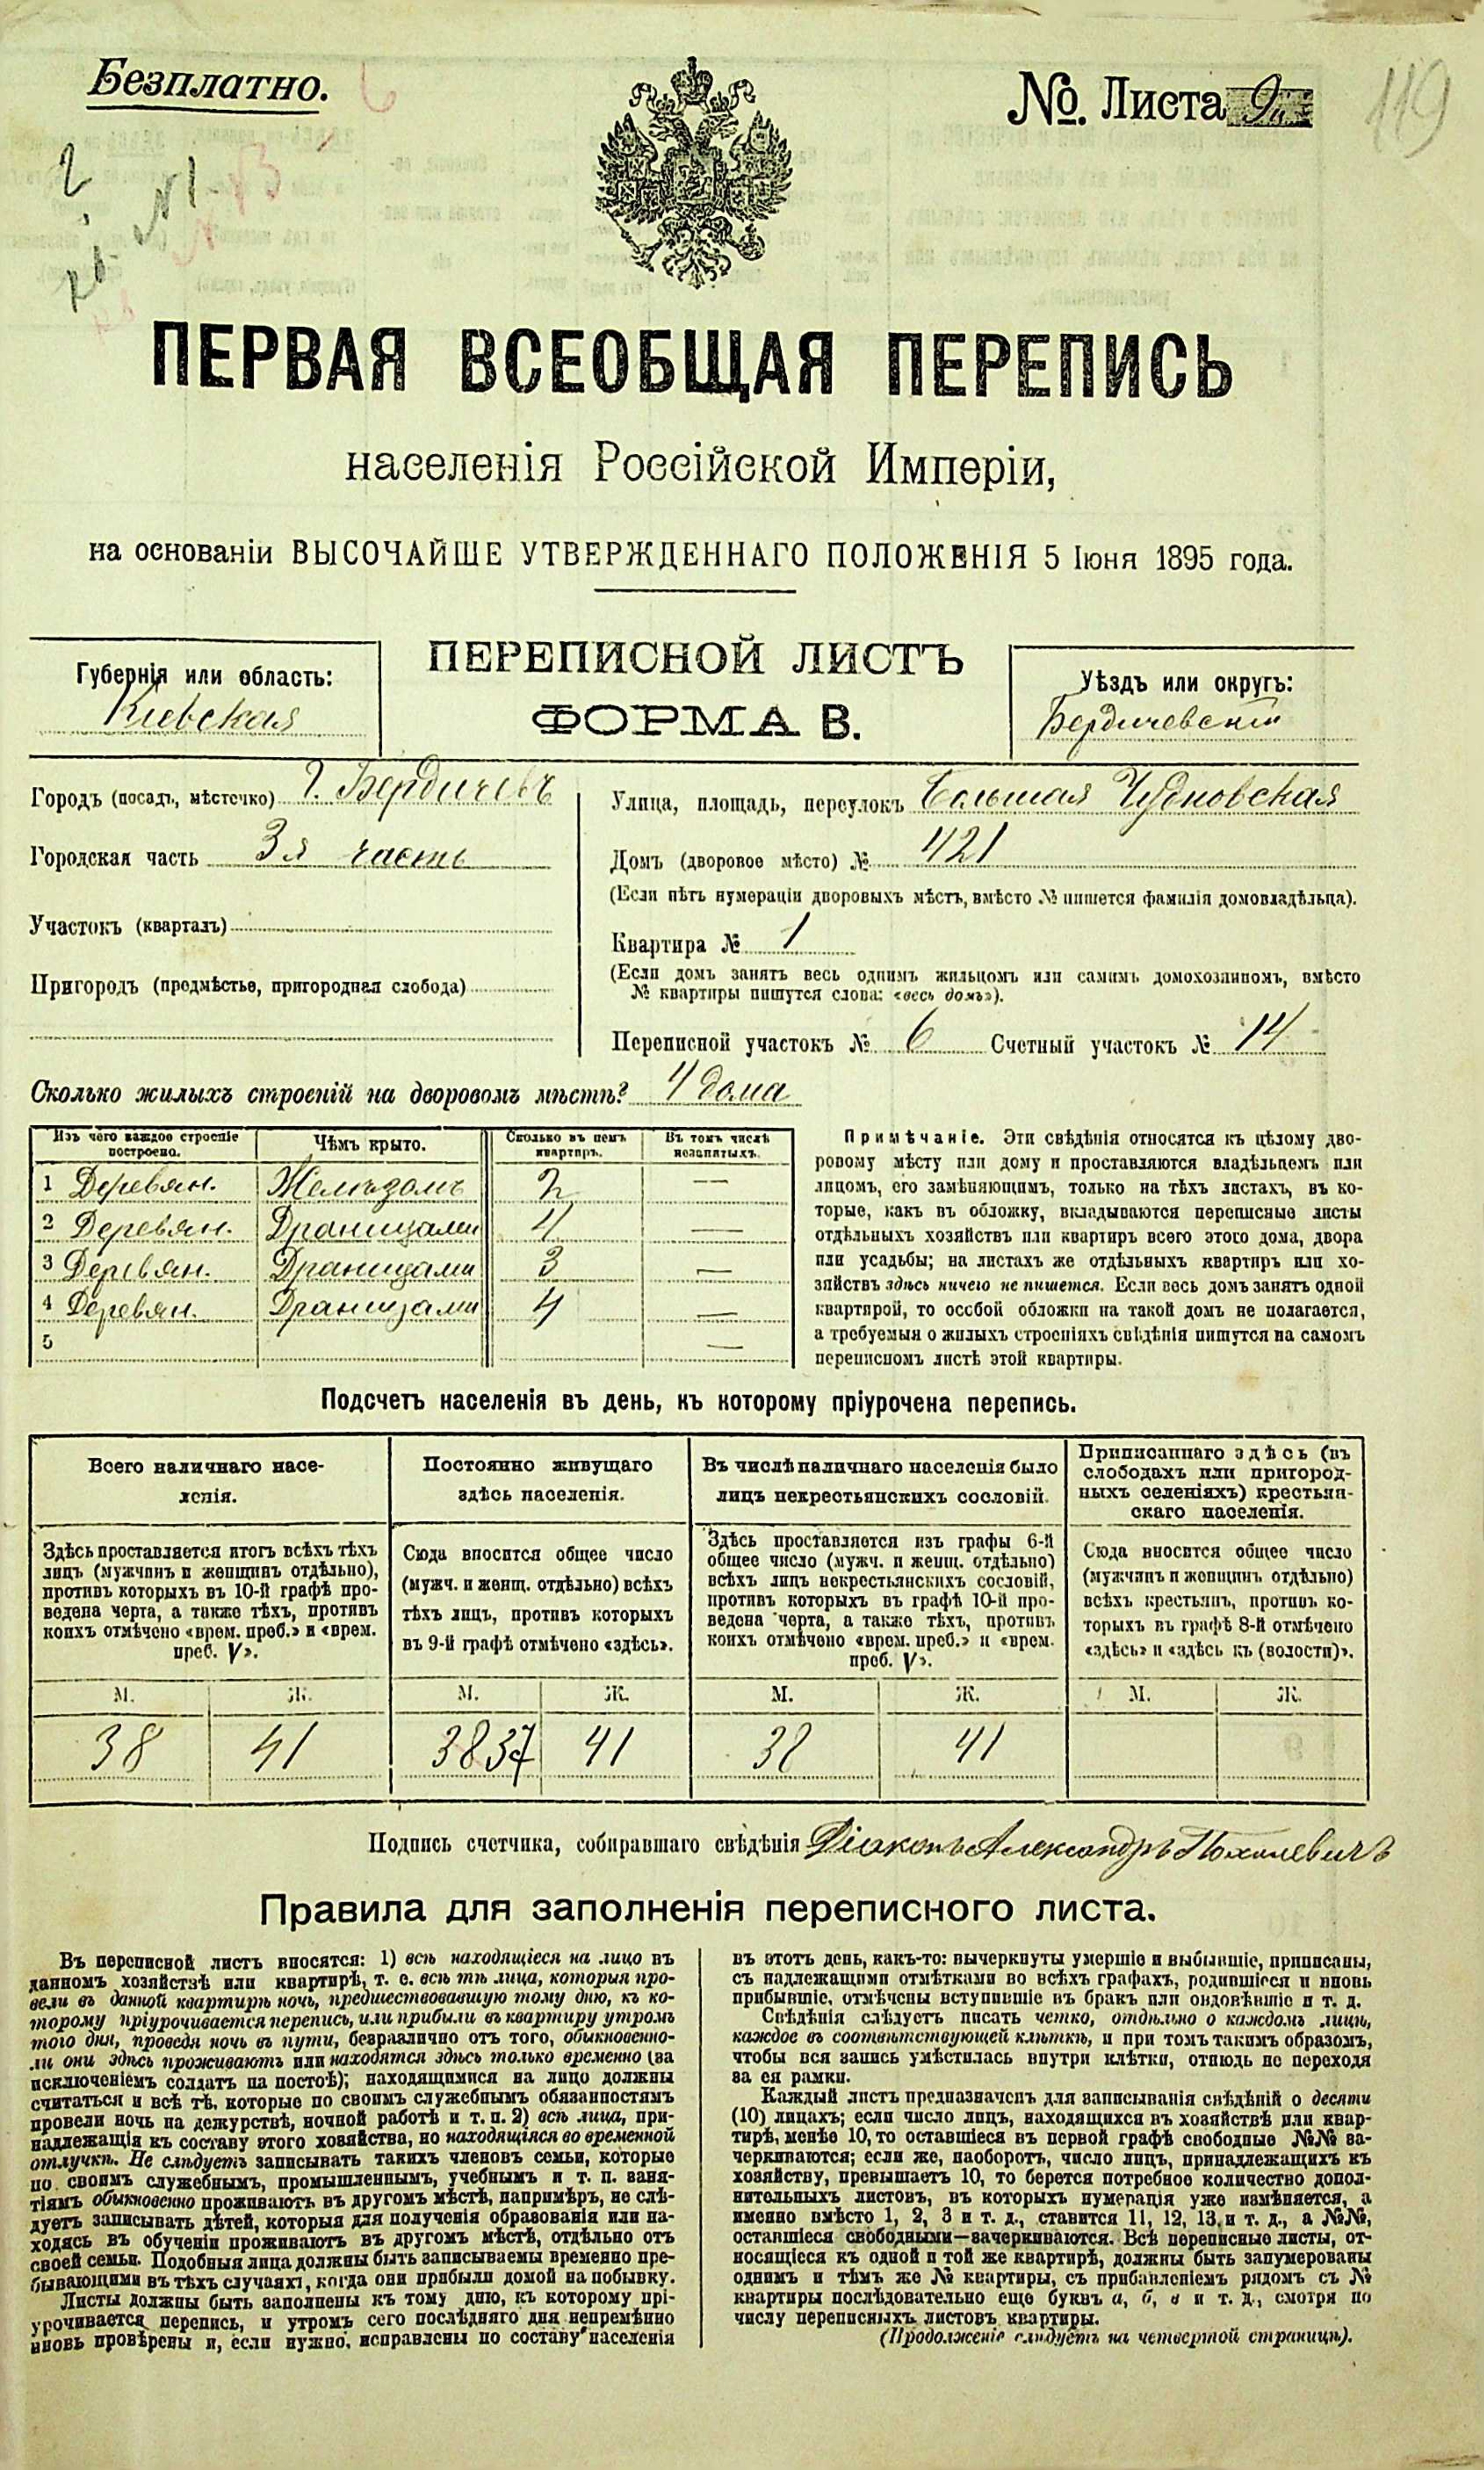 Безплатно.
№. Листа 9
119
2
№1
ПЕРВАЯ ВСЕОБЩАЯ ПЕРЕПИСЬ
населенія Россійской Имперіи,
на основаніи ВЫСОЧАЙШЕ УТВЕРЖДЕННАГО ПОЛОЖЕНІЯ 5 Іюня 1895 года.
ПЕРЕПИСНОЙ ЛИСТЪ
ФОРМА В.
Губернія или область:
Кіевская
Уѣздъ или округъ:
Бердичевскій
Городъ (посадъ, мѣстечко) г. Бердичевъ
Городская часть 3я часть
Участокъ (кварталъ)
Пригородъ (предмѣстье, пригородная слобода)
Улица, площадь, переулокъ Большая Чудновская
Домъ (дворовое мѣсто) № 421
(Если нѣтъ нумераціи дворовыхъ мѣстъ, вмѣсто № пишется фамилія домовладѣльца).
Квартира № 1
(Если домъ занятъ весь однимъ жильцомъ или самимъ домохозяиномъ, вмѣсто
№ квартиры пишутся слова: «весь домъ»).
Переписной участокъ № 6 Счетный участокъ № 14
Сколько жилыхъ строеній на дворовомъ мѣстѣ? 4 дома
Изъ чего каждое строеніе построено. Чѣмъ крыто. Сколько въ немъ квартиръ. Въ томъ числѣ незанятыхъ.
1 Деревян. Желѣзомъ 2 —
2 Деревян. Драницами 4 —
3 Деревян. Драницами 3 —
4 Деревян. Драницами 4 —
5 —
Примѣчаніе. Эти свѣдѣнія относятся къ цѣлому дво-
ровому мѣсту или дому и проставляются владѣльцемъ или
лицомъ, его замѣняющимъ, только на тѣхъ листахъ, въ ко-
торые, какъ въ обложку, вкладываются переписные листы
отдѣльныхъ хозяйствъ или квартиръ всего этого дома, двора
или усадьбы; на листахъ же отдѣльныхъ квартиръ или хо-
зяйствъ здѣсь ничего не пишется. Если весь домъ занятъ одной
квартирой, то особой обложки на такой домъ не полагается,
а требуемыя о жилыхъ строеніяхъ свѣдѣнія пишутся на самомъ
переписномъ листѣ этой квартиры.
Подсчетъ населенія въ день, къ которому пріурочена перепись.
Всего наличнаго насе-
ленія.
Здѣсь проставляется итогъ всѣхъ тѣхъ
лицъ (мужчинъ и женщинъ отдѣльно),
противъ которыхъ въ 10-й графѣ про-
ведена черта, а также тѣхъ, противъ
коихъ отмѣчено «врем. преб.» и «врем.
преб. V».
М. Ж.
38 41
Постоянно живущаго
здѣсь населенія.
Сюда вносится общее число
(мужч. и женщ. отдѣльно) всѣхъ
тѣхъ лицъ, противъ которыхъ
въ 9-й графѣ отмѣчено «здѣсь».
М. Ж.
38 37 41
Въ числѣ наличнаго населенія было
лицъ некрестьянскихъ сословій.
Здѣсь проставляется изъ графы 6-й
общее число (мужч. и женщ. отдѣльно)
всѣхъ лицъ некрестьянскихъ сословій,
противъ которыхъ въ графѣ 10-й про-
ведена черта, а также тѣхъ, противъ
коихъ отмѣчено «врем. преб.» и «врем.
преб. V».
М. Ж.
38 41
Приписаннаго здѣсь (въ
слободахъ или пригород-
ныхъ селеніяхъ) крестьян-
скаго населенія.
Сюда вносится общее число
(мужчинъ и женщинъ отдѣльно)
всѣхъ крестьянъ, противъ ко-
торыхъ въ графѣ 8-й отмѣчено
«здѣсь» и «здѣсь къ (волости)».
М. Ж.
Подпись счетчика, собиравшаго свѣдѣнія Діаконъ Александръ
Правила для заполненія переписного листа.
Въ переписной листъ вносятся: 1) всѣ находящіеся на лицо въ
данномъ хозяйствѣ или квартирѣ, т. е. всѣ тѣ лица, которыя про-
вели въ данной квартирѣ ночь, предшествовавшую тому дню, къ ко-
торому пріурочивается перепись, или прибыли въ квартиру утромъ
того дня, проведя ночь въ пути, безразлично отъ того, обыкновенно-
ли они здѣсь проживаютъ или находятся здѣсь только временно (за
исключеніемъ солдатъ на постоѣ); находящимися на лицо должны
считаться и всѣ тѣ, которые по своимъ служебнымъ обязанностямъ
провели ночь на дежурствѣ, ночной работѣ и т. п. 2) всѣ лица, при-
надлежащія къ составу этого хозяйства, но находящіяся во временной
отлучкѣ. Не слѣдуетъ записывать такихъ членовъ семьи, которые
по своимъ служебнымъ, промышленнымъ, учебнымъ и т. п. заня-
тіямъ обыкновенно проживаютъ въ другомъ мѣстѣ, напримѣръ, не слѣ-
дуетъ записывать дѣтей, которыя для полученія образованія или на-
ходясь въ обученіи проживаютъ въ другомъ мѣстѣ, отдѣльно отъ
своей семьи. Подобныя лица должны быть записываемы временно пре-
бывающими въ тѣхъ случаяхъ, когда они прибыли домой на побывку.
Листы должны быть заполнены къ тому дню, къ которому прі-
урочивается перепись, и утромъ сего послѣдняго дня непремѣнно
вновь провѣрены и, если нужно, исправлены по составу населенія
въ этотъ день, какъ-то: вычеркнуты умершіе и выбывшіе, приписаны,
съ надлежащими отмѣтками во всѣхъ графахъ, родившіеся и вновь
прибывшіе, отмѣчены вступившіе въ бракъ или овдовѣвшіе и т. д.
Свѣдѣнія слѣдуетъ писать четко, отдѣльно о каждомъ лицѣ,
каждое въ соотвѣтствующей клѣткѣ, и при томъ такимъ образомъ,
чтобы вся запись умѣстилась внутри клѣтки, отнюдь не переходя
за ея рамки.
Каждый листъ предназначенъ для записыванія свѣдѣній о десяти
(10) лицахъ; если число лицъ, находящихся въ хозяйствѣ или квар-
тирѣ, менѣе 10, то оставшіеся въ первой графѣ свободные №№ за-
черкиваются; если же, наоборотъ, число лицъ, принадлежащихъ къ
хозяйству, превышаетъ 10, то берется потребное количество допол-
нительныхъ листовъ, въ которыхъ нумерація уже измѣняется, а
именно вмѣсто 1, 2, 3 и т. д., ставится 11, 12, 13 и т. д., а №№,
оставшіеся свободными—зачеркиваются. Всѣ переписные листы, от-
носящіеся къ одной и той же квартирѣ, должны быть занумерованы
однимъ и тѣмъ же № квартиры, съ прибавленіемъ рядомъ съ №
квартиры послѣдовательно еще буквъ а, б, в и т. д., смотря по
числу переписныхъ листовъ квартиры.
(Продолженіе слѣдуетъ на четвертой страницѣ).